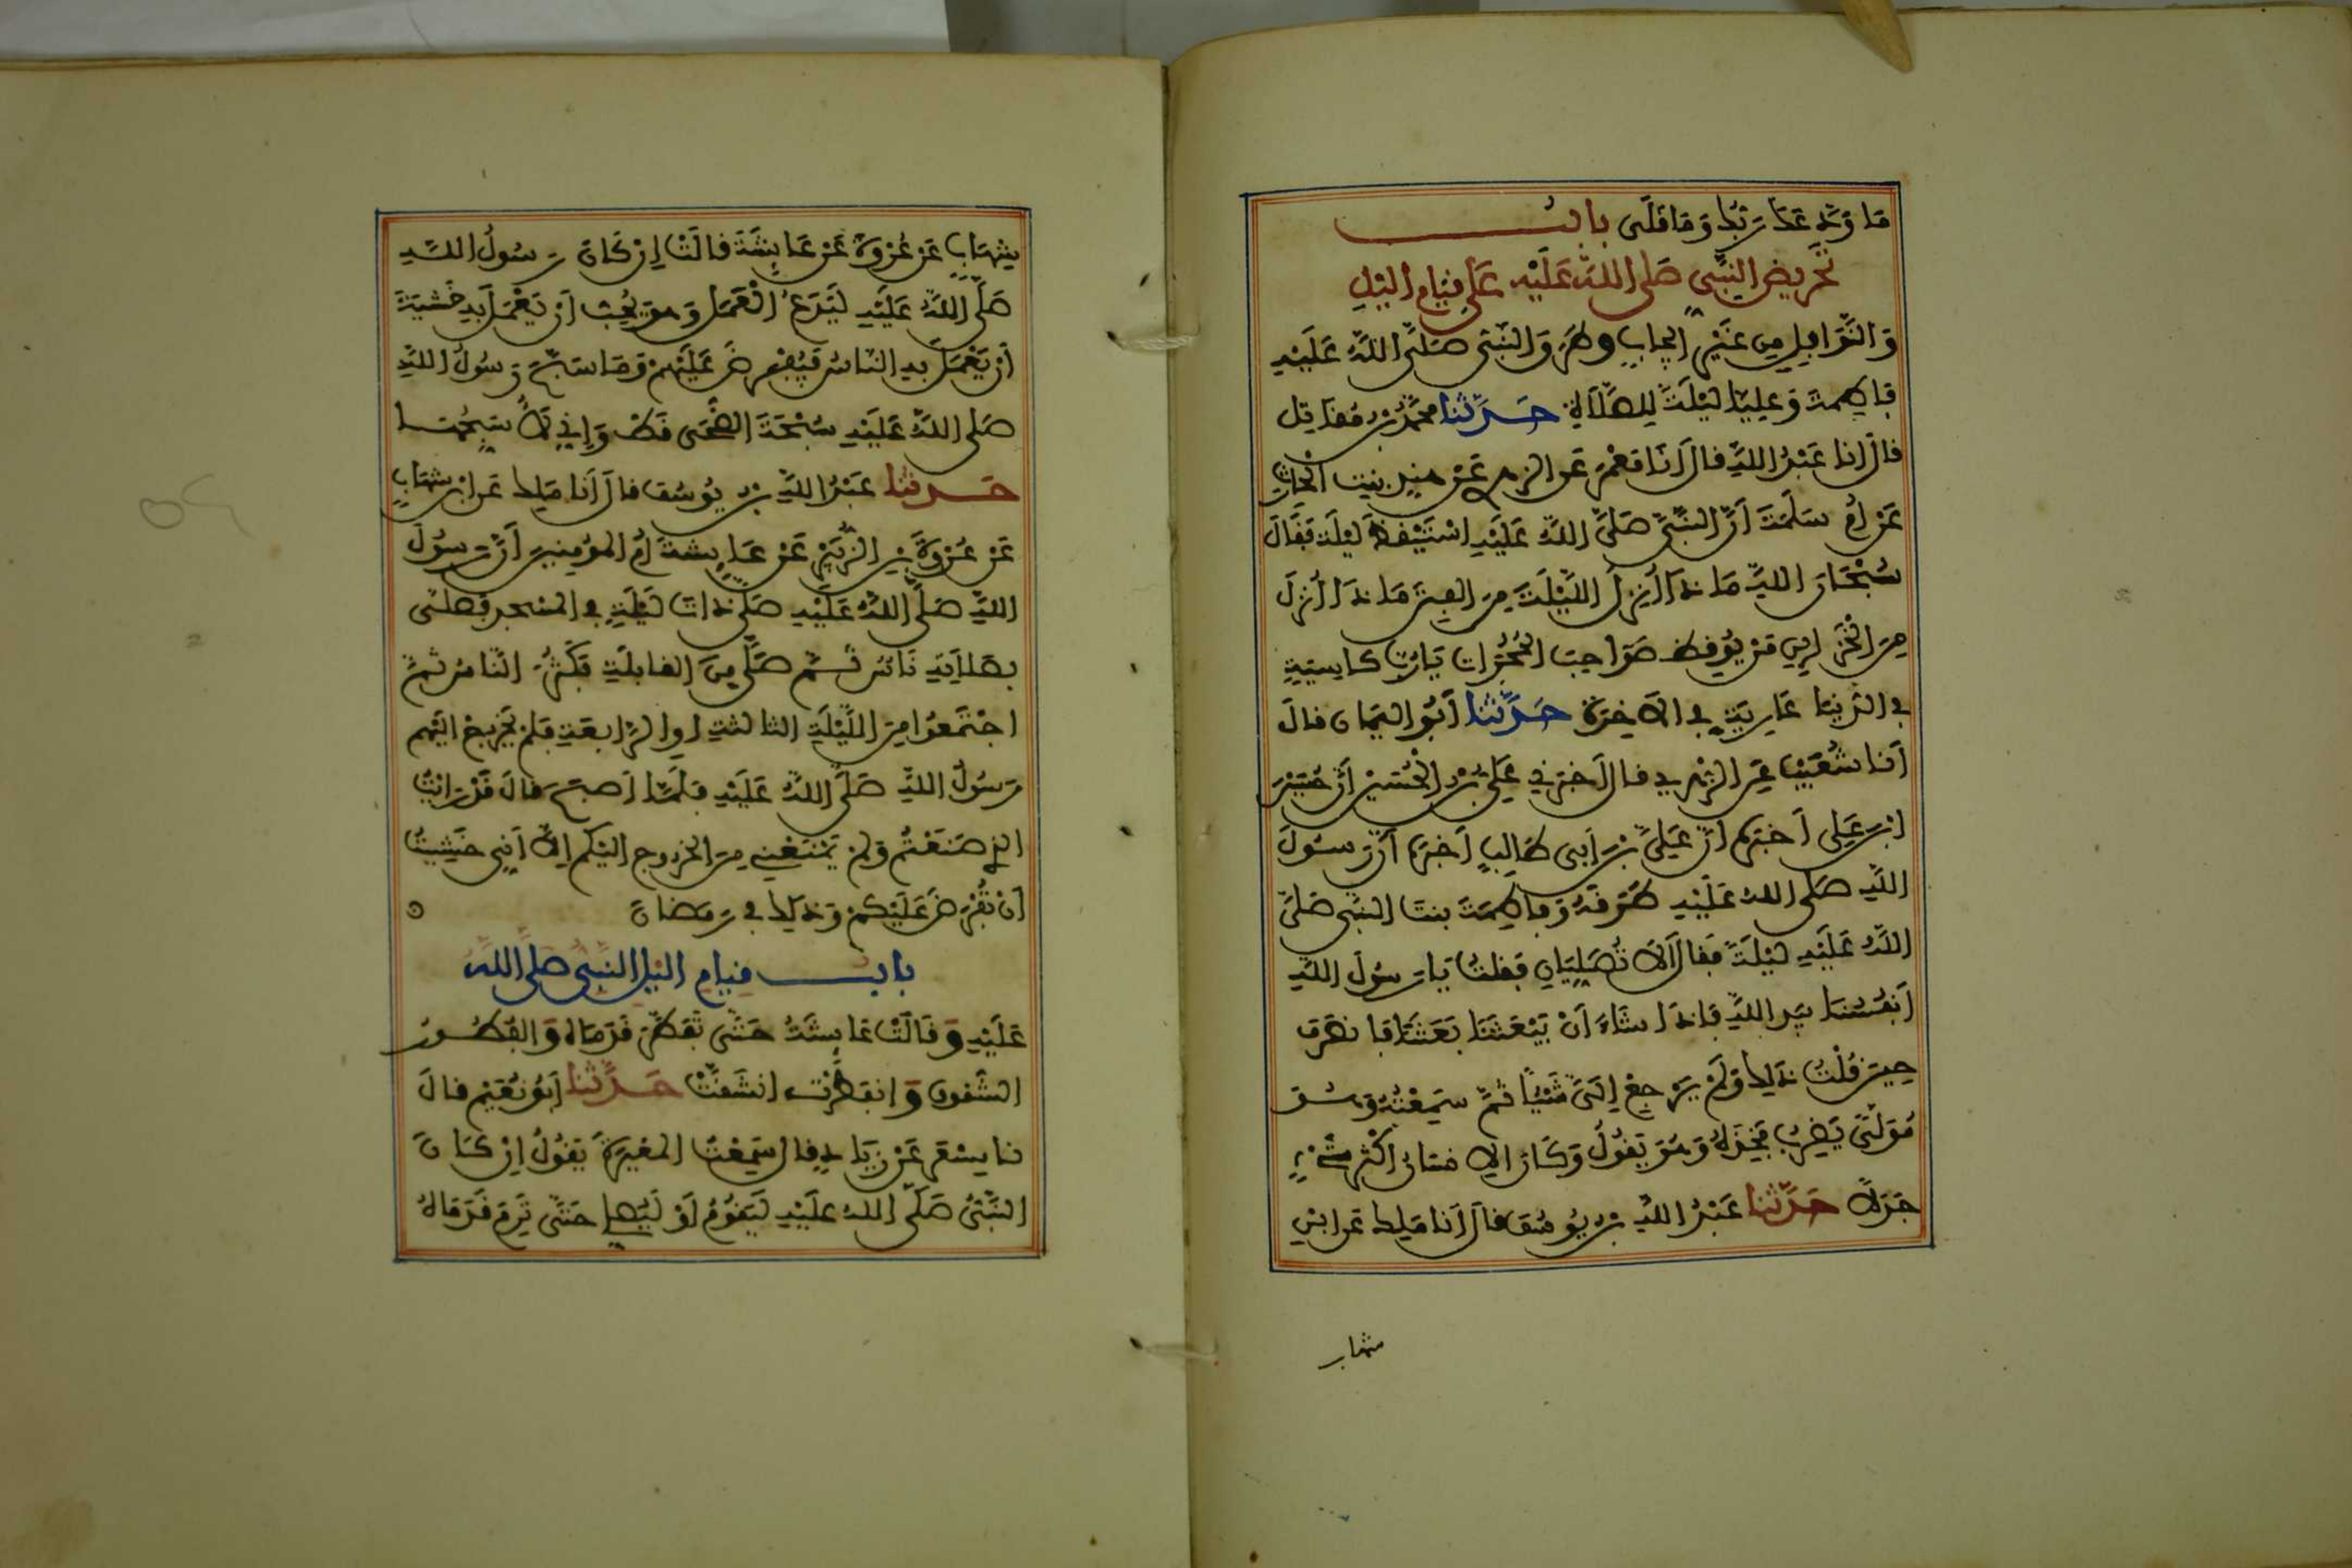 مَا وَدَّعَكَ رَبُّكَ وَمَا قَلَى بابُ
تَحْرِيضِ النَّبِيِّ صَلَّى اللَّهُ عَلَيْهِ عَلَى قِيَامِ الَّيْلِ
وَالنَّوَافِلِ مِنْ غَيْرِ إِيجَابٍ وَطَرَقَ النَّبِيُّ صَلَّى اللَّهُ عَلَيْهِ
فَاطِمَةَ وَعَلِيًّا لَيْلَةً لِلصَّلَاةِ حَدَّثَنَا مُحَمَّدُ بْنُ مُقَاتِلٍ
قَالَ انا عَبْدُ اللَّهِ قَالَ أَنَا مَعْمَرٌ عَنِ الزهري عَنْ هِنْدٍ بِنْتِ الْحَارِثِ
عَنْ أُمِّ سَلَمَةَ أَنَّ النَّبِيَّ صَلَّى اللَّهُ عَلَيْهِ اسْتَيْقَظَ لَيْلَةً فَقَالَ
سُبْحَانَ اللَّهِ مَاذَا أُنْزِلَ اللَّيْلَةَ مِنَ الْفِتَنِ مَاذَا أُنْزِلَ
مِنَ الْخَزَائِنِ مَنْ يُوقِظُ صَوَاحِبَ الْحُجُرَاتِ يَا رُبَّ كَاسِيَةٍ
فِي الدُّنْيَا عَارِيَةٍ فِي الْآخِرَةِ حَدَّثَنَا أَبُو الْيَمَانِ قَالَ
أَنَا شُعَيْبٌ عَنِ الزُّهْرِيِّ قَالَ أَخْبَرَنِي عَلِيُّ بْنُ الْحُسَيْنِ أَنَّ حُسَيْنَ
ابْنَ عَلِيٍّ أَخْبَرَهُ أَنَّ عَلِيَّ بْنَ أَبِي طَالِبٍ أَخْبَرَهُ أَنَّ رَسُولَ
اللَّهِ صَلَّى اللَّهُ عَلَيْهِ طَرَقَهُ وَفَاطِمَةَ بِنْتَ النَّبِيِّ صَلَّى
اللَّهُ عَلَيْهِ لَيْلَةً فَقَالَ أَلَا تُصَلِّيَانِ فَقُلْتُ يَا رَسُولَ اللَّهِ
أَنْفُسُنَا بِيَدِ اللَّهِ فَإِذَا شَاءَ أَنْ يَبْعَثَنَا بَعَثَنَا فَانْصَرَفَ
حِينَ قُلْتُ ذَلِكَ وَلَمْ يَرْجِعْ إِلَيَّ شَيْئًا ثُمَّ سَمِعْتُهُ وَهُوَ
مُوَلٍّ يَضْرِبُ فَخِذَهُ وَهُوَ يَقُولُ وَكَانَ الْإِنْسَانُ أَكْثَرَ شَيْءٍ
جَدَلًا حَدَّثَنَا عَبْدُ اللَّهِ بْنُ يُوسُفَ قَالَ أَنَا مَالِكٌ عَنِ ابْنِ
شهاب
شِهَابٍ عَنْ عُرْوَةَ عَنْ عَائِشَةَ قَالَتْ إِنْ كَانَ رَسُولُ اللَّهِ
صَلَّى اللَّهُ عَلَيْهِ لَيَدَعُ الْعَمَلَ وَهُوَ يُحِبُّ أَنْ يَعْمَلَ بِهِ خَشْيَةَ
أَنْ يَعْمَلَ بِهِ النَّاسُ فَيُفْرَضَ عَلَيْهِمْ وَمَا سَبَّحَ رَسُولُ اللَّهِ
صَلَّى اللَّهُ عَلَيْهِ سُبْحَةَ الضُّحَى قَطُّ وَإِنِّي لَأُسَبِّحُهَا
حَدَّثَنَا عَبْدُ اللَّهِ بْنُ يُوسُفَ قَالَ أَنَا مَالِكٌ عَنِ ابْنِ شِهَابٍ
عَنْ عُرْوَةَ بْنِ الزُّبَيْرِ عَنْ عَائِشَةَ أُمِّ الْمُؤْمِنِينَ أَنَّ رَسُولَ
اللَّهِ صَلَّى اللَّهُ عَلَيْهِ صَلَّى ذَاتَ لَيْلَةٍ فِي الْمَسْجِدِ فَصَلَّى
بِصَلَاتِهِ نَاسٌ ثُمَّ صَلَّى مِنَ الْقَابِلَةِ فَكَثُرَ النَّاسُ ثُمَّ
اجْتَمَعُوا مِنَ اللَّيْلَةِ الثَّالِثَةِ أَوِ الرَّابِعَةِ فَلَمْ يَخْرُجْ إِلَيْهِمْ
رَسُولُ اللَّهِ صَلَّى اللَّهُ عَلَيْهِ فَلَمَّا أَصْبَحَ قَالَ قَدْ رَأَيْتُ
الَّذِي صَنَعْتُمْ وَلَمْ يَمْنَعْنِي مِنَ الْخُرُوجِ إِلَيْكُمْ إِلَّا أَنِّي خَشِيتُ
أَنْ تُفْرَضَ عَلَيْكُمْ وَذَلِكَ فِي رَمَضَانَ
بابُ قِيَامِ الَّيْلِ النَّبِيِّ صَلَّى اللَّهُ
عَلَيْهِ وَقَالَتْ عَائِشَةُ حَتَّى تَفَطَّرَ قَدَمَاهُ وَالْفُطُورُ
الشُّقُوقُ وَانْفَطَرَتْ انْشَقَّتْ حَدَّثَنَا أَبُو نُعَيْمٍ قَالَ
نا مِسْعَرٌ عَنْ زِيَادٍ قَالَ سَمِعْتُ الْمُغِيرَةَ يَقُولُ إِنْ كَانَ
النَّبِيُّ صَلَّى اللَّهُ عَلَيْهِ لَيَقُومُ أَوْ لَيُصَلِّي حَتَّى تَرِمَ قَدَمَاهُ